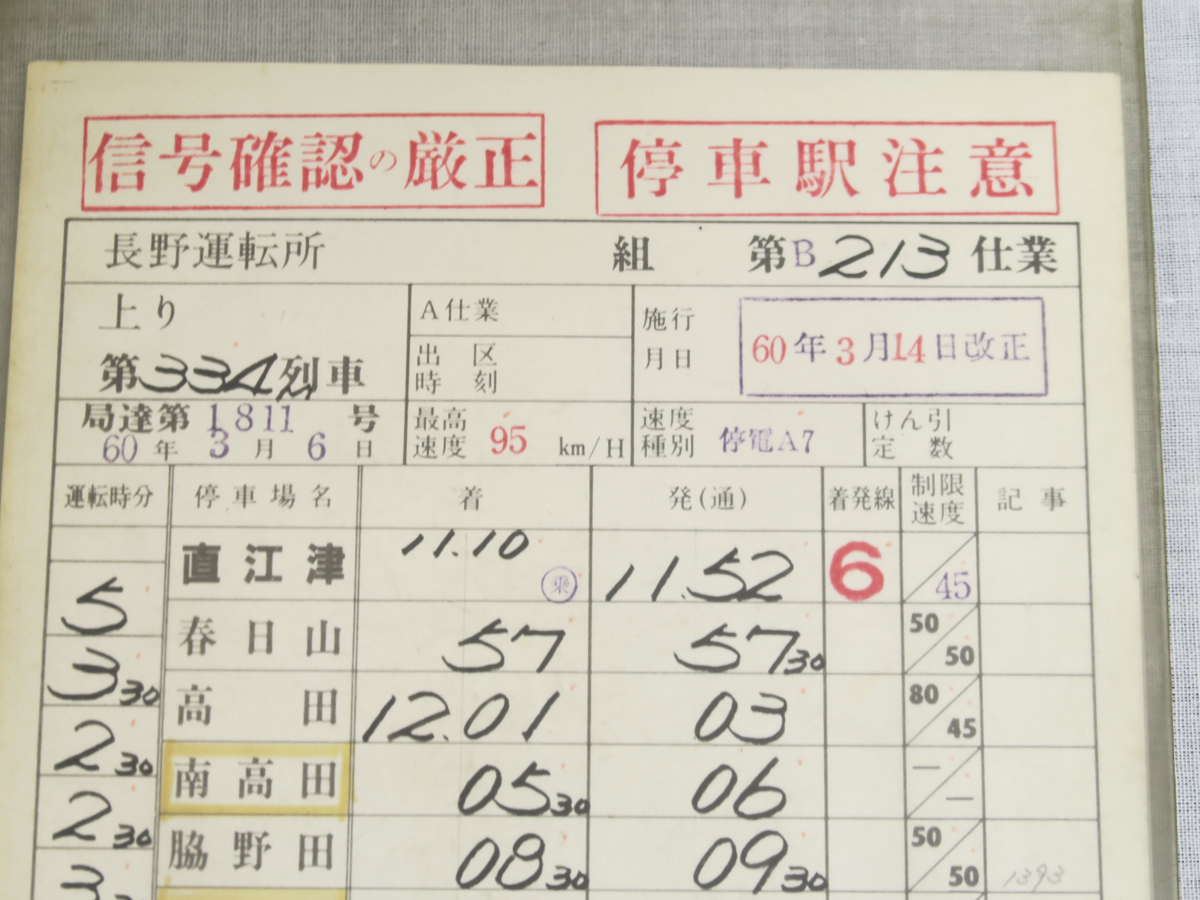 信号確認の厳正 停車駅注意
長野運転所 組 第B213仕業
上り
第334列車
A仕業
出区
時刻
施行
月日
60年3月14日改正
局達第1811号
60年3月6日
最高
速度 95 km/H
速度
種別 停電A7
けん引
定数
運転時分 停車場名 着 発(通) 着発線 制限速度 記事
直江津 11.10 乘 11.52 6 45
5
春日山 57 57 30 50 50
3 30
高田 12.01 03 80 45
2 30
南高田 05 30 06 — —
2 30
脇野田 08 30 09 30 50 50 1393